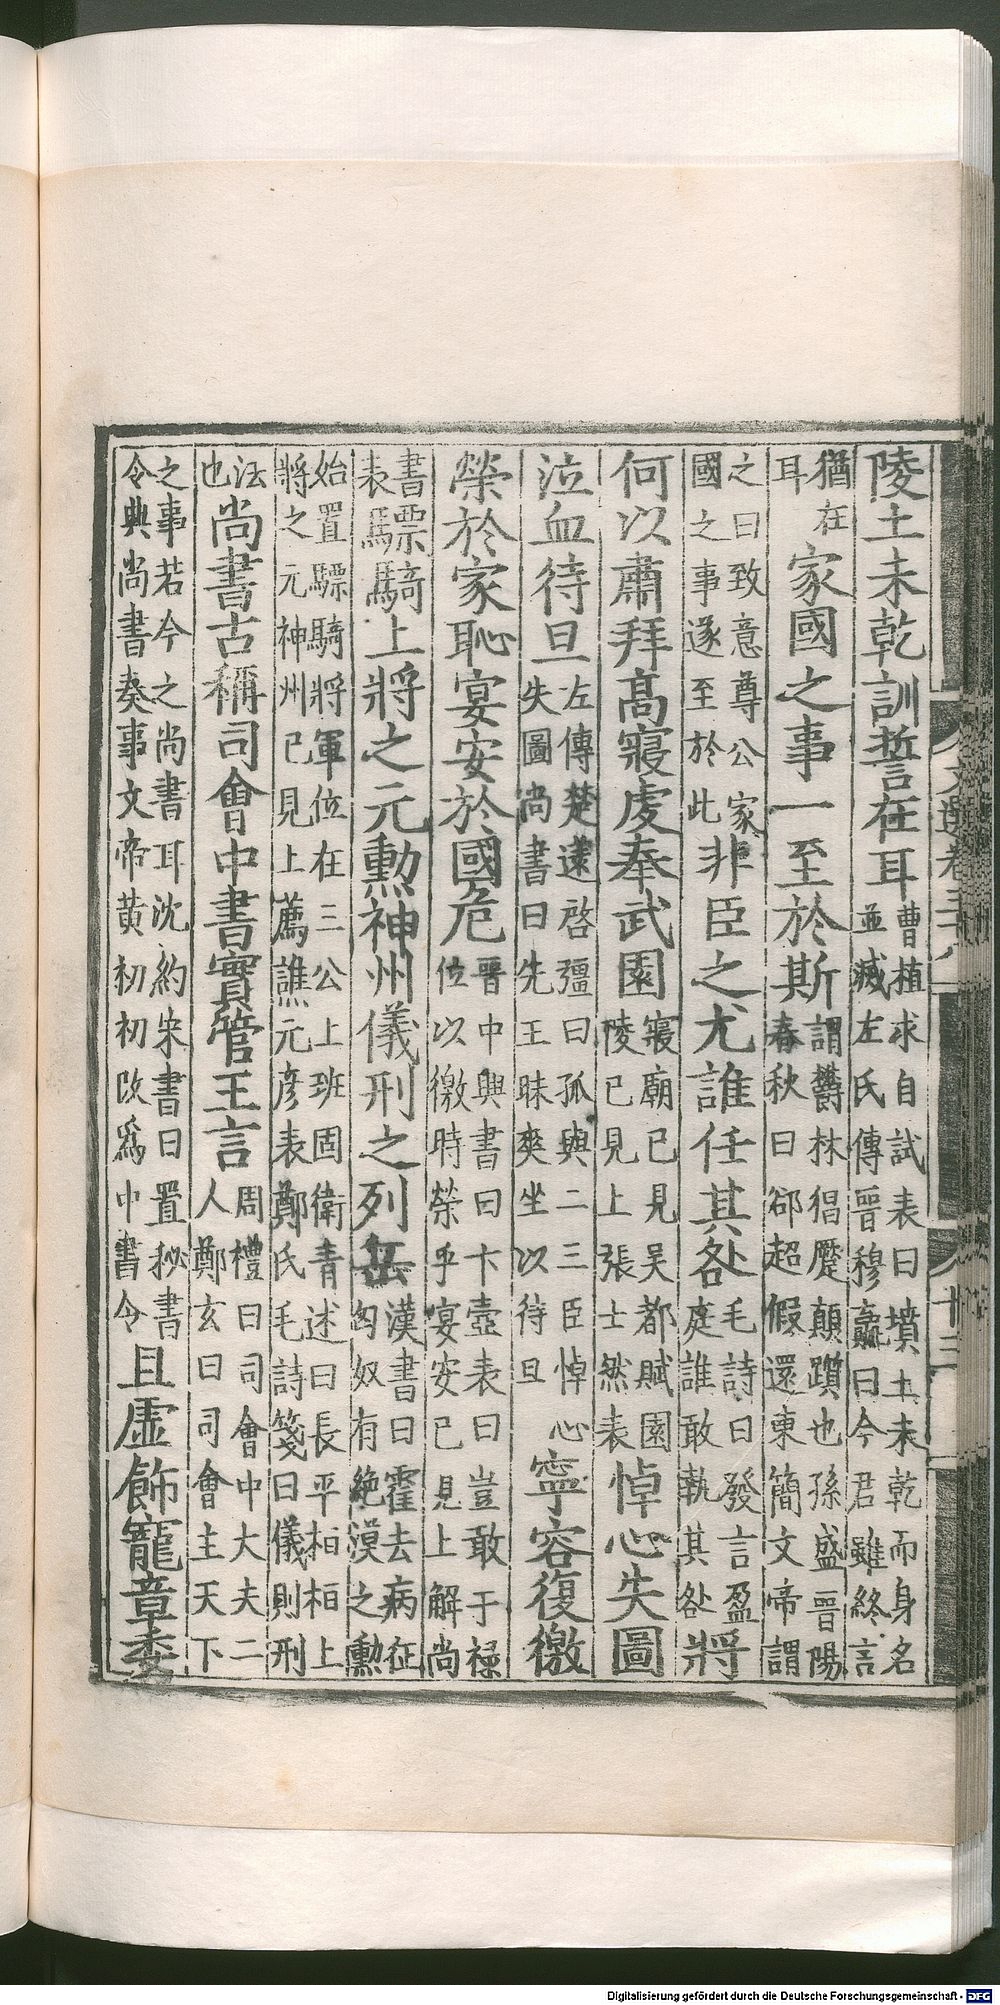 陵土未乾訓誓在耳曹植求自試表曰墳土未乾而身名並滅左氏傳晉穆嬴曰今君雖終言
猶在耳家國之事一至於斯謂欝林猖蹷顛躓也孫盛晉陽春秋曰郤超假還東簡文帝謂
之曰致意尊公家國之事遂至於此非臣之尤誰任其咎毛詩曰發言盈庭誰敢執其咎將
何以肅拜髙寢虔奉武園寢廟已見吴都賦園陵已見上張士然表悼心失圖
泣血待旦左傳楚薳啓彊曰孤與二三臣悼心失圖尚書曰先王昧爽坐以待旦寧容復徼
榮於家恥宴安於國危晉中興書曰卞壼表曰豈敢于禄位以徼時榮乎宴安已見上解尚
書表驃騎上將之元勲神州儀刑之列岳漢書曰霍去病征匈奴有絶漠之勲
始置驃騎將軍位在三公上班固衛青述曰長平桓桓上將之元神州已見上薦譙元彦表鄭氏毛詩箋曰儀則刑
法也尚書古稱司會中書實管王言周禮曰司會中大夫二人鄭玄曰司會主天下
之事若今之尚書耳沈約宋書曰置秘書令典尚書奏事文帝黄初初改爲中書令且虚飾寵章委
文選卷三十八
十三
Digitalisierung gefördert durch die Deutsche Forschungsgemeinschaft - DFG